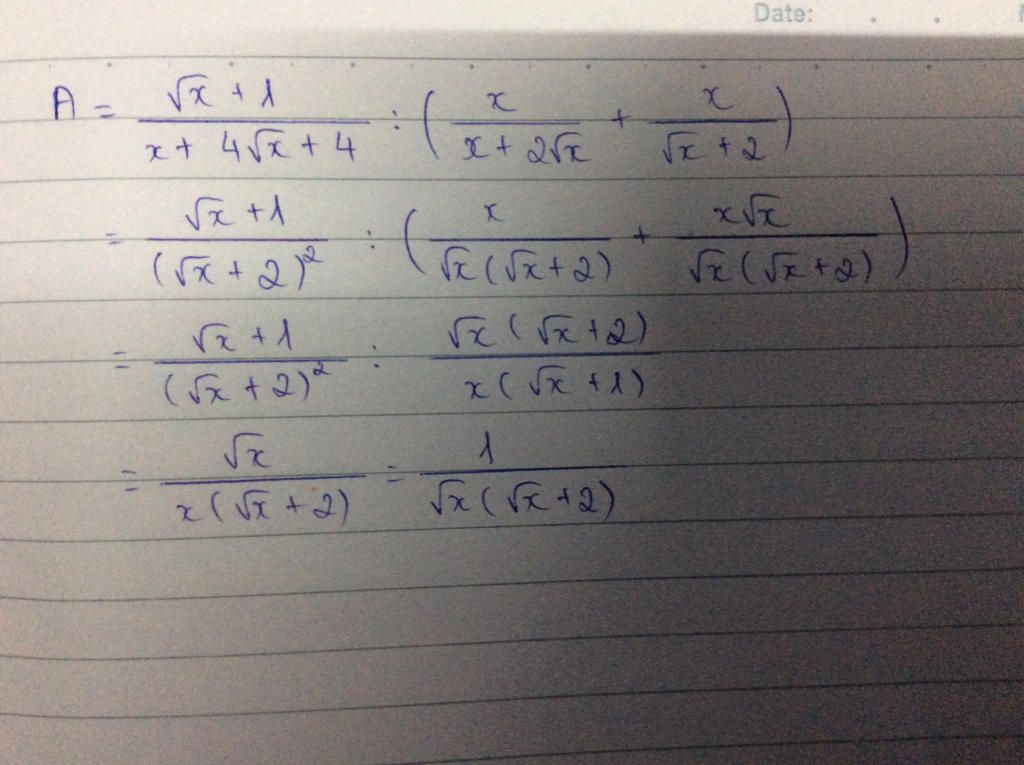 Date: . .
A = \frac{\sqrt{x} + 1}{x + 4\sqrt{x} + 4} : \left( \frac{x}{x + 2\sqrt{x}} + \frac{x}{\sqrt{x} + 2} \right)
= \frac{\sqrt{x} + 1}{(\sqrt{x} + 2)^2} : \left( \frac{x}{\sqrt{x}(\sqrt{x} + 2)} + \frac{x\sqrt{x}}{\sqrt{x}(\sqrt{x} + 2)} \right)
= \frac{\sqrt{x} + 1}{(\sqrt{x} + 2)^2} : \frac{\sqrt{x}(\sqrt{x} + 2)}{x(\sqrt{x} + 1)}
= \frac{\sqrt{x}}{x(\sqrt{x} + 2)} = \frac{1}{\sqrt{x}(\sqrt{x} + 2)}